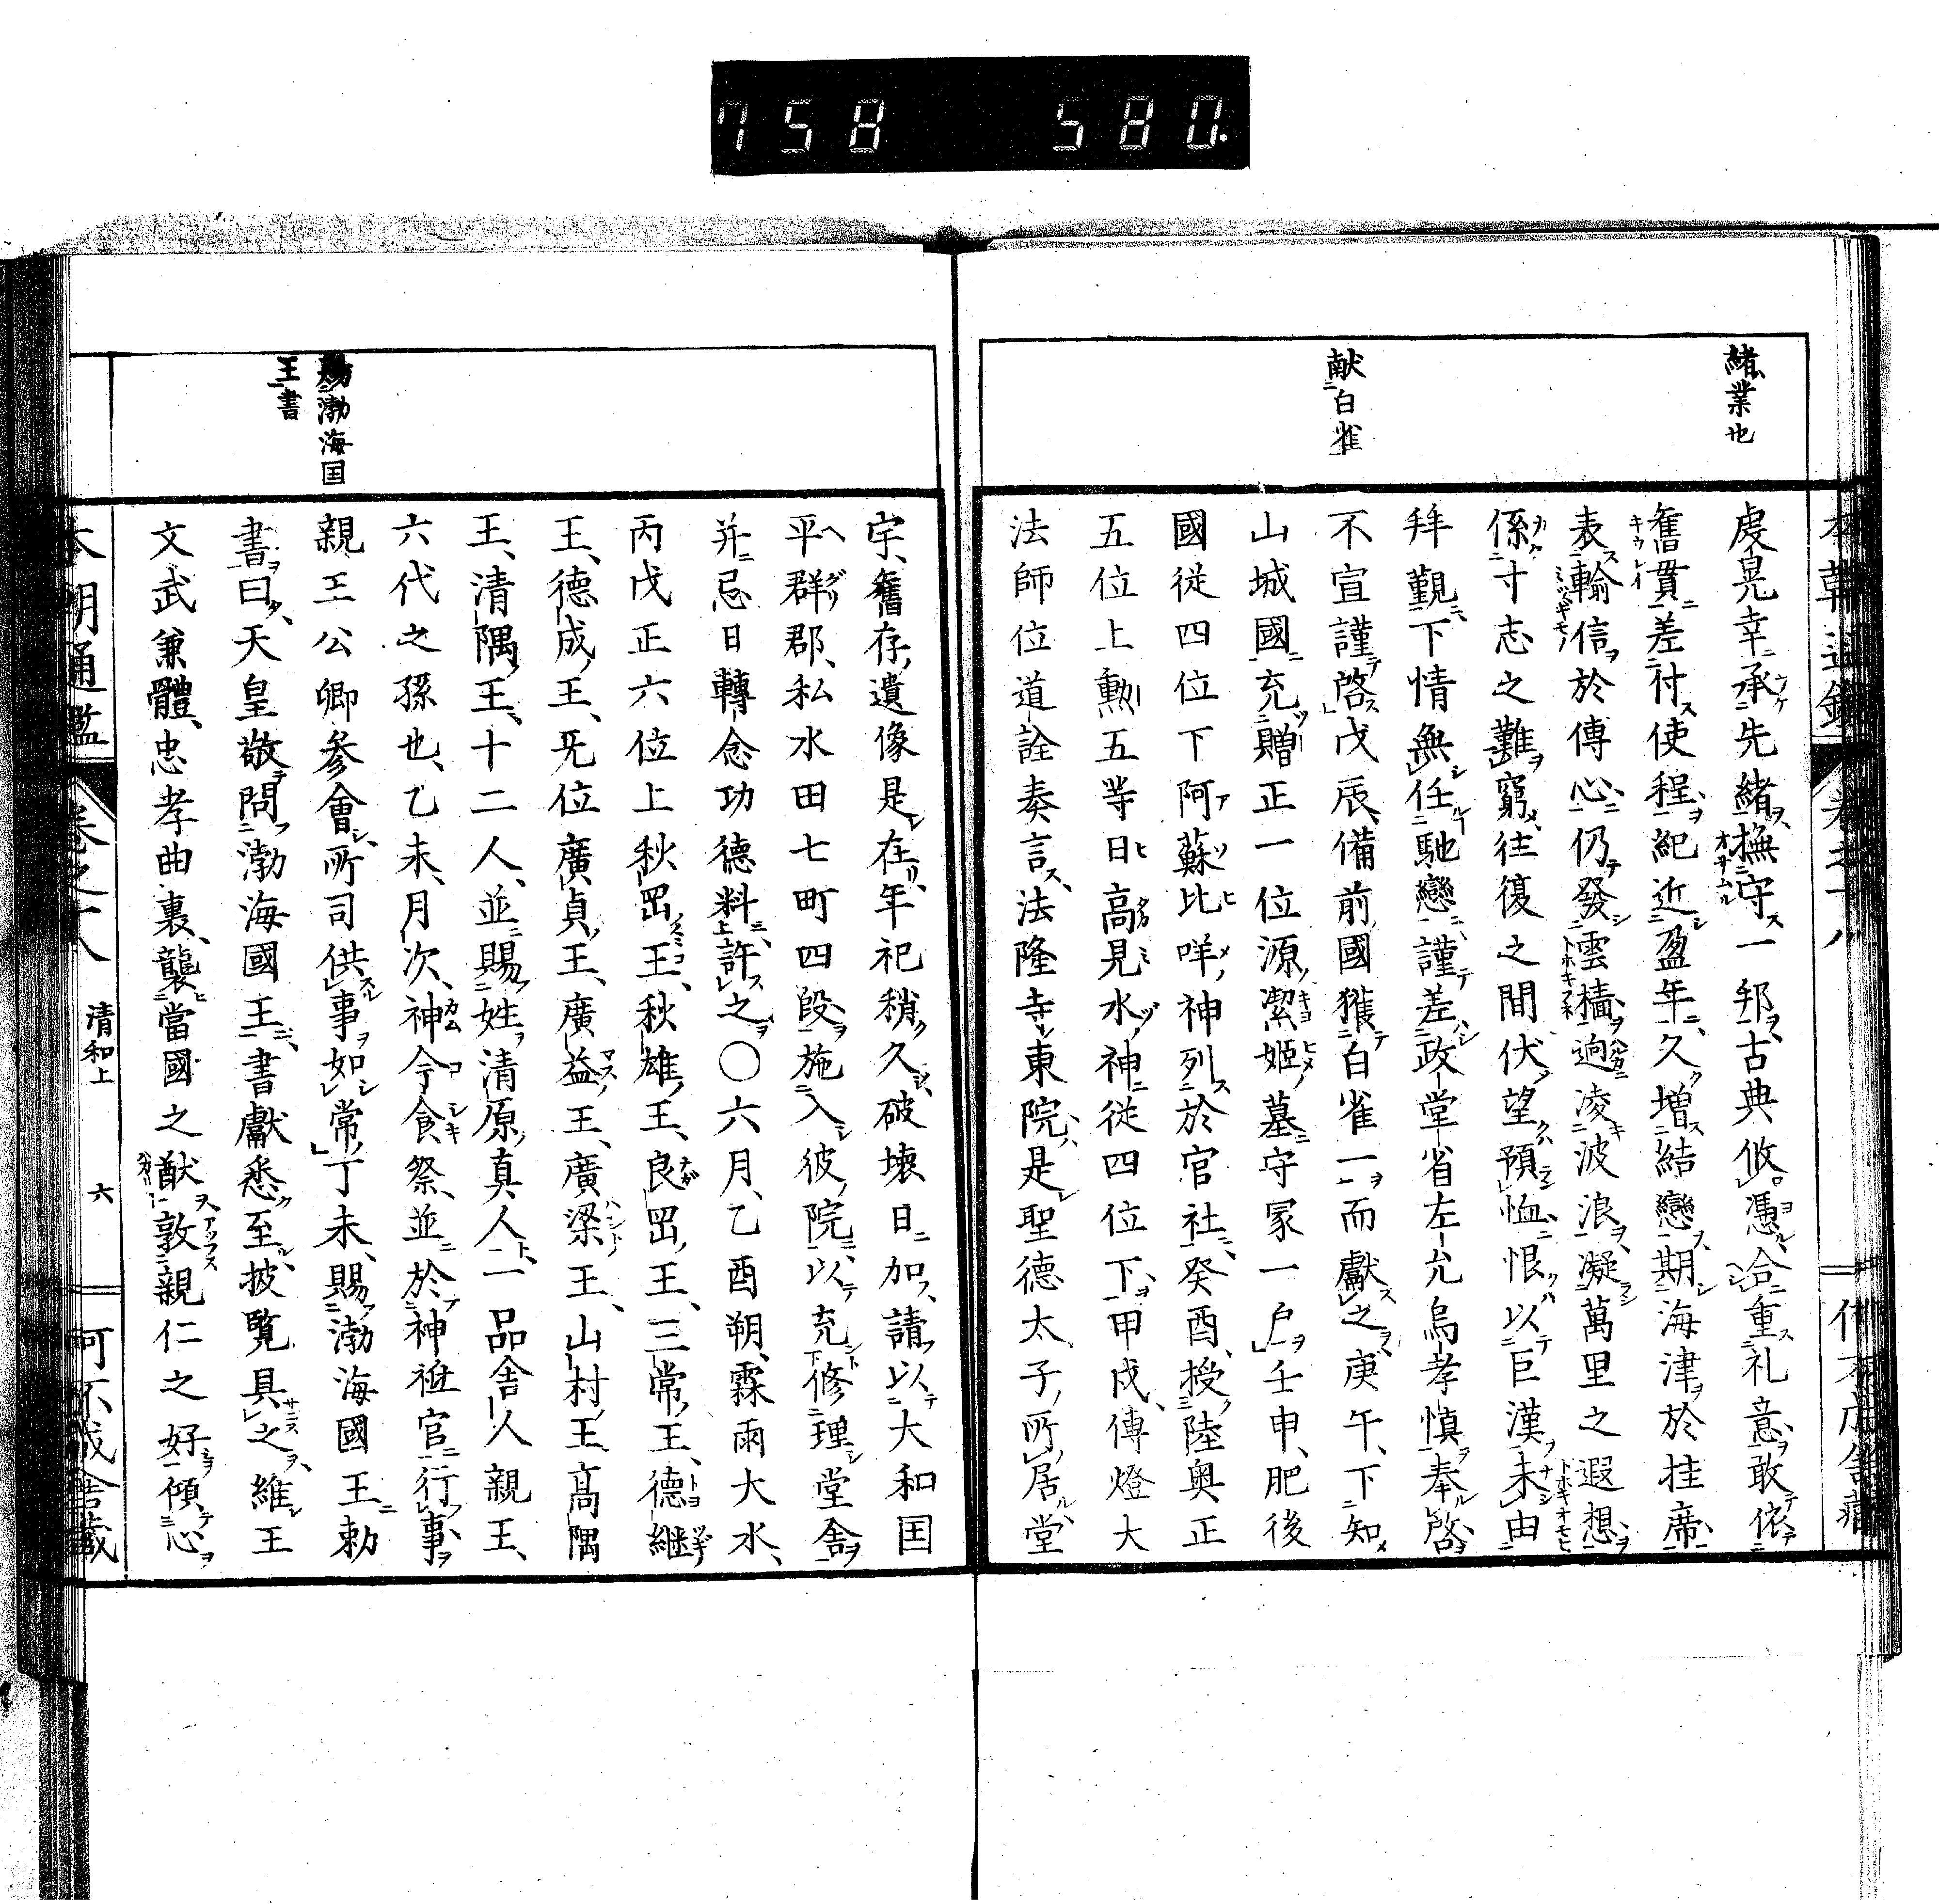 758 580.
緒業也
献白雀
虔晃幸承先緒撫守一邦古典攸憑合重礼意敢依
舊貫差付使程紀近盈年久増結戀期海津於挂席
表輸信於傳心仍發雲檣逈凌波浪凝萬里之遐想
係寸志之難窮往復之間伏望預恤恨以巨漢未由
拜覲下情無任馳戀謹差政堂省左允烏孝慎奉啓
不宣謹啓戊辰備前國獲白雀一而獻之庚午下知
山城國充贈正一位源潔姫墓守冢一戸壬申肥後
國従四位下阿蘇比咩神列於官社癸酉授陸奥正
五位上勲五等日高見水神従四位下甲戌傳燈大
法師位道詮奏言法隆寺東院是聖德太子所居堂
宇舊存遺像是在年祀稍久破壊日加請以大和囯
平群郡私水田七町四段施入彼院以充修理堂舎
并忌日轉念功德料許之〇六月乙酉朔霖雨大水
丙戊正六位上秋岡王秋雄王良岡王三常王德継
王德成王无位廣貞王廣益王廣梁王山村王髙隅
王清隅王十二人並賜姓清原真人一品舎人親王
六代之孫也乙未月次神今食祭並於神祇官行事
親王公卿参會所司供事如常丁未賜渤海國王勅
書曰天皇敬問渤海國王書獻悉至披覽具之維王
文武兼體忠孝由裏襲當國之猷敦親仁之好傾心
賜渤海囯
王書
本朝通鑑 卷之十八 清和上 六